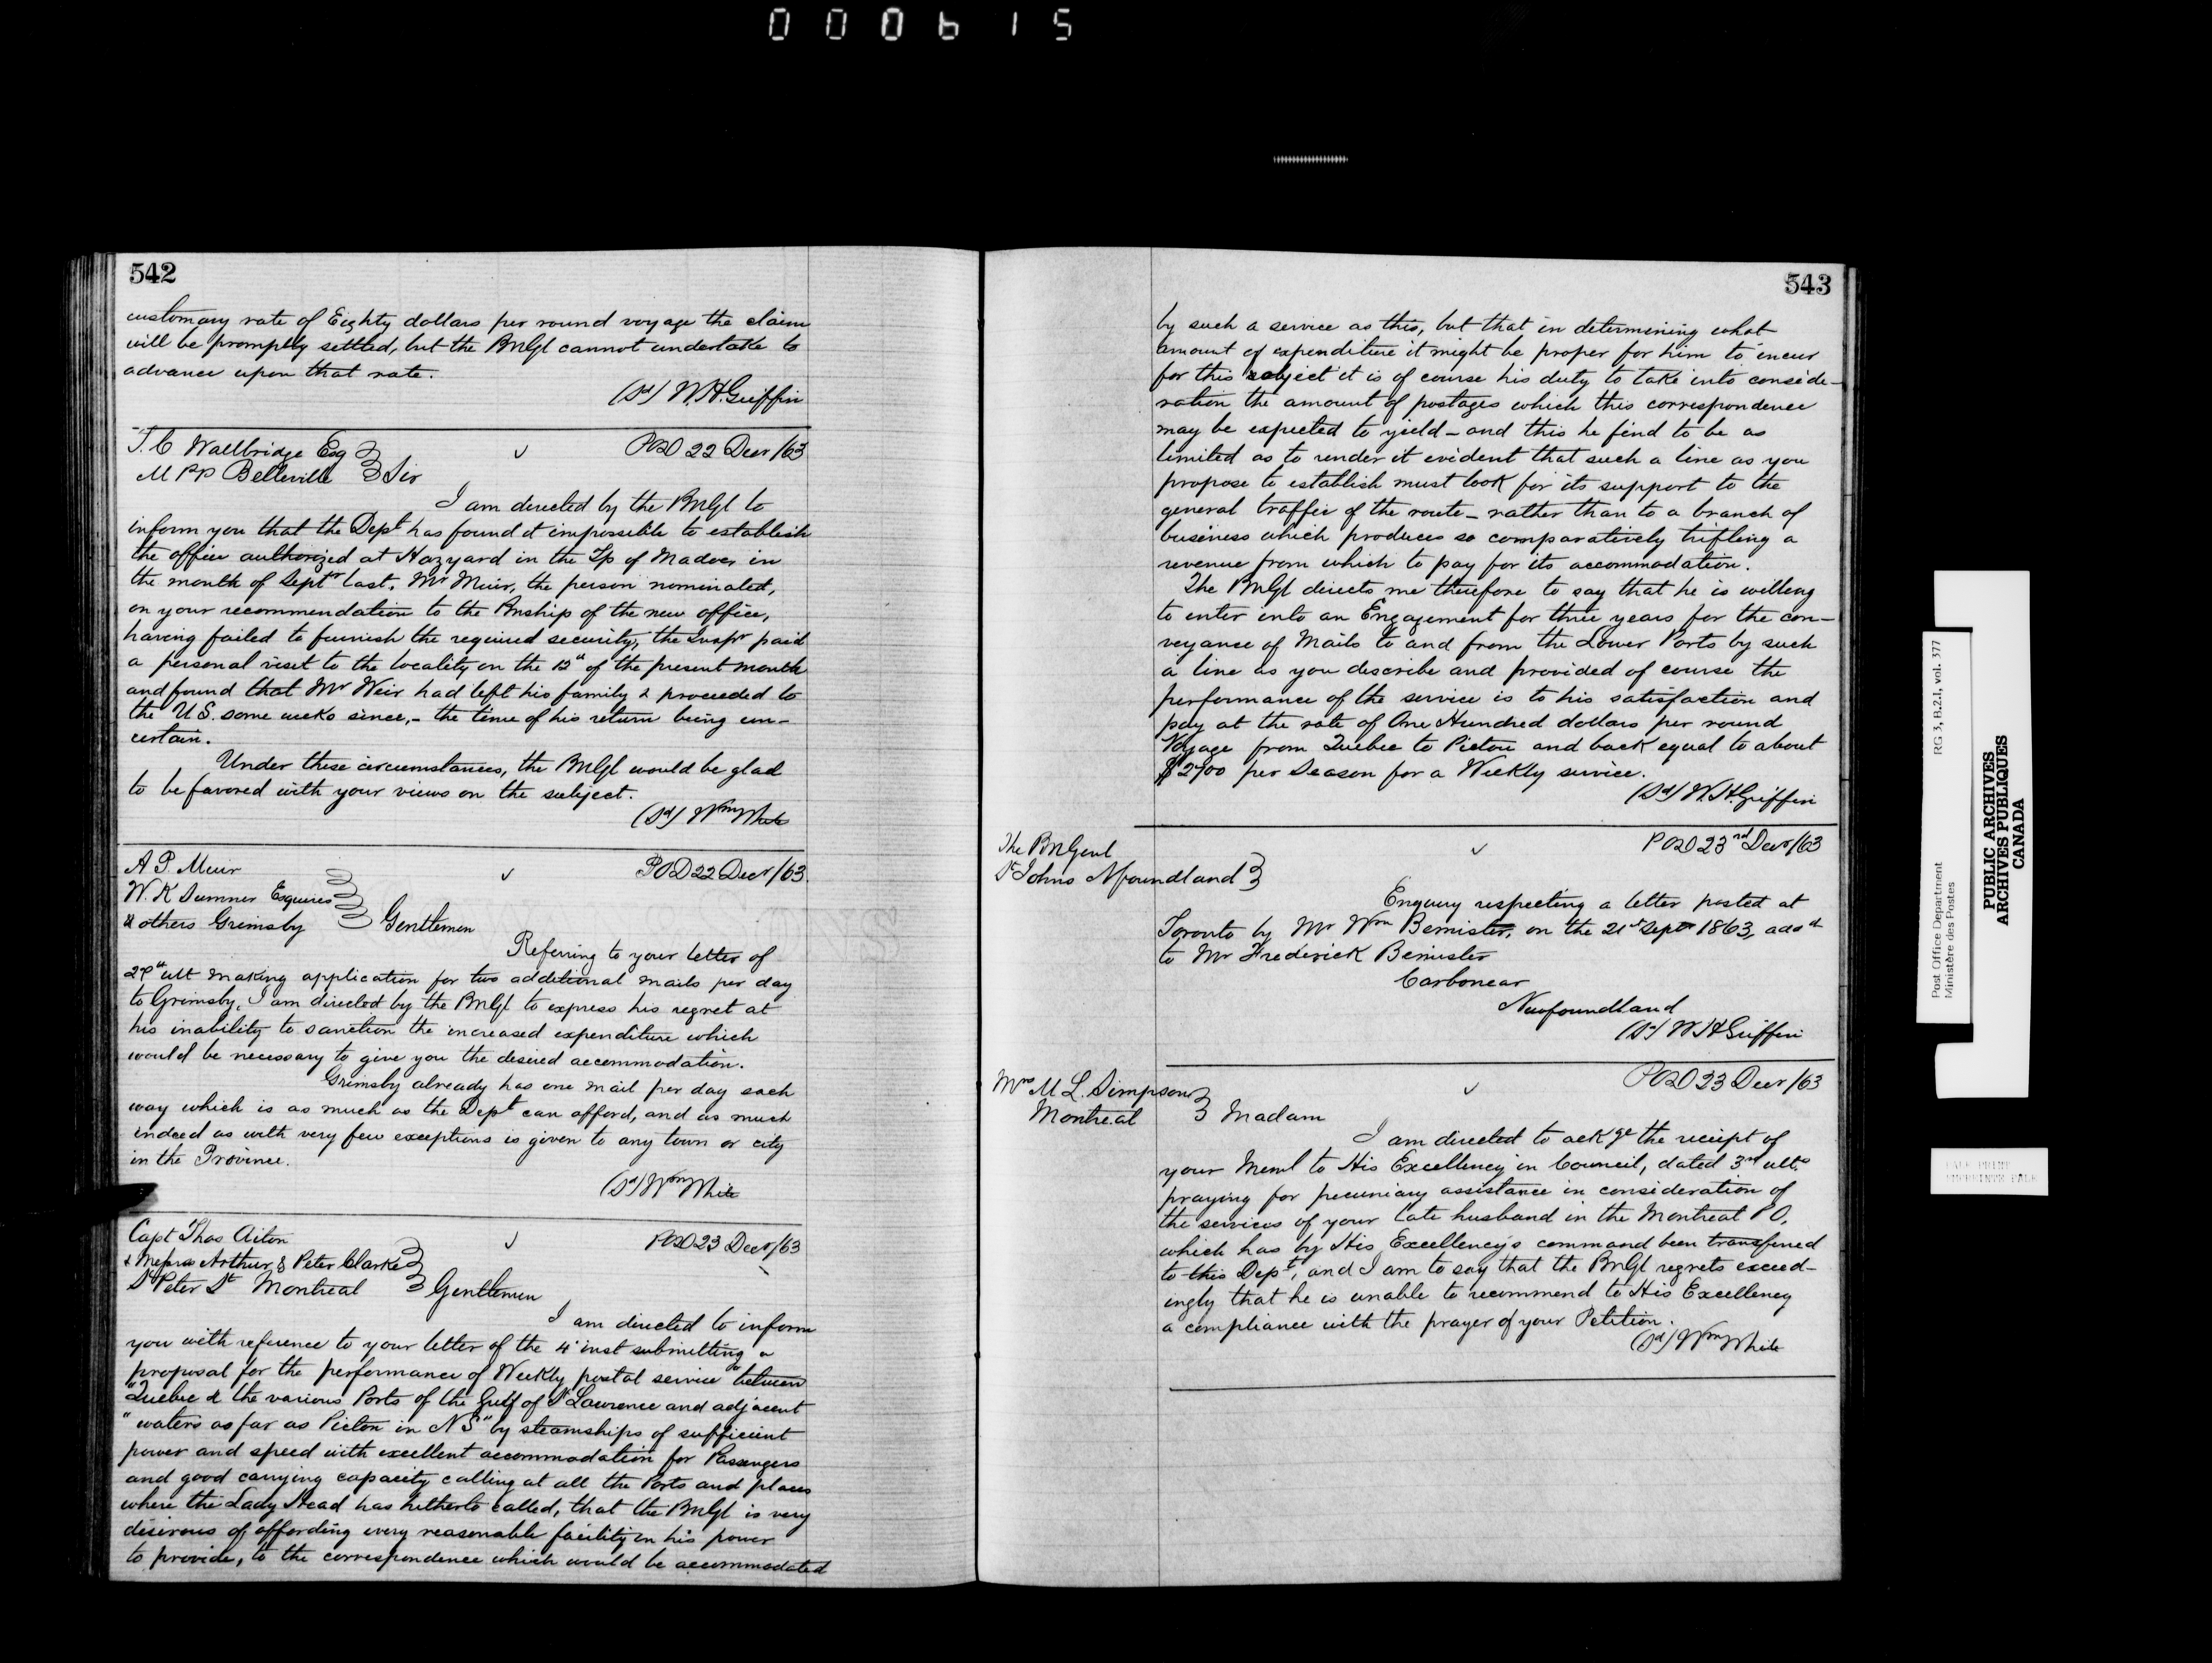 000615
542
customary rate of Eighty dollars per round voyage the claim
will be promptly settled, but the PMGl cannot undertake to
advance upon that rate.
(Sd) W.H. Griffin
T. C Wallbridge Esq
POD 22 Decr /63
M PP Belleville
Sir
I am directed by the PMGl to
inform you that the Dept has found it impossible to establish
the office authorized at Hazyard in the Tp of Madoc, in
the month of Septr last. Mr Muir, the person nominated,
on your recommendation to the PMship of the new office,
having failed to furnish the required security, the Inspr paid
a personal visit to the locality on the 12th of the present month
and found that Mr Weir had left his family & proceeded to
the U S. some weeks since, - the time of his return being un-
certain.
Under these circumstances, the PMGl would be glad
to be favored with your views on the subject.
(Sd) Wm White
A P. Muir
POD 22 Decr /63.
W. K Sumner Esquires
& others Grimsby
Gentlemen
Referring to your letter of
27th ult making application for two additional mails per day
to Grimsby, I am directed by the PMGl to express his regret at
his inability to sanction the increased expenditure which
would be necessary to give you the desired accommodation.
Grimsby already has one mail per day each
way which is as much as the Dept can afford, and as much
indeed as with very few exceptions is given to any town or city
in the Province.
(Sd) Wm White
Capt Thos Aiton
POD 23 Decr /63
& Messrs Arthur & Peter Clarke
St Peter St Montreal
Gentlemen
I am directed to inform
you with reference to your letter of the 4th inst submitting a
proposal for the performance of Weekly postal service "between
"Quebec & the various Ports of the Gulf of St Lawrence and adjacent
"waters as far as Pictou in N S" by steamships of sufficient
power and speed with excellent accommodation for Passengers
and good carrying capacity calling at all the Ports and places
where the Lady Head has hitherto called, that the PMGl is very
desirous of affording every reasonable facility in his power
to provide, to the correspondence which would be accommodated
543
by such a service as this, but that in determining what
amount of expenditure it might be proper for him to incur
for this subject it is of course his duty to take into conside-
ration the amount of postages which this correspondence
may be expected to yield - and this he find to be as
limited as to render it evident that such a line as you
propose to establish must look for its support to the
general traffic of the route - rather than to a branch of
business which produces so comparatively trifling a
revenue from which to pay for its accommodation.
The PMGl directs me therefore to say that he is willing
to enter into an Engagement for three years for the con-
veyance of Mails to and from the Lower Ports by such
a line as you describe and provided of course the
performance of the service is to his satisfaction and
pay at the rate of One Hundred dollars per round
Voyage from Quebec to Pictou and back equal to about
$2700 per Season for a Weekly service.
(Sd) W.H. Griffin
The PMGenl
POD 23rd Decr /63
St Johns Nfoundland
Enquiry respecting a letter posted at
Toronto by Mr Wm Bemister, on the 21st Septr 1863, addd
to Mr Frederick Bemister
Carbonear
Newfoundland
(Sd) W H Griffin
Mrs M L. Simpson
POD 23 Decr /63
Montreal
Madam
I am directed to ackge the receipt of
your Meml to His Excellency in Council, dated 3rd ulto
praying for pecuniary assistance in consideration of
the services of your late husband in the Montreal P O,
which has by His Excellency's command been transferred
to this Dept, and I am to say that the PMGl regrets exceed-
ingly that he is unable to recommend to His Excellency
a compliance with the prayer of your Petition.
(Sd) Wm White
Post Office Department RG 3, B.2.1, vol. 377
Ministère des Postes
PUBLIC ARCHIVES
ARCHIVES PUBLIQUES
CANADA